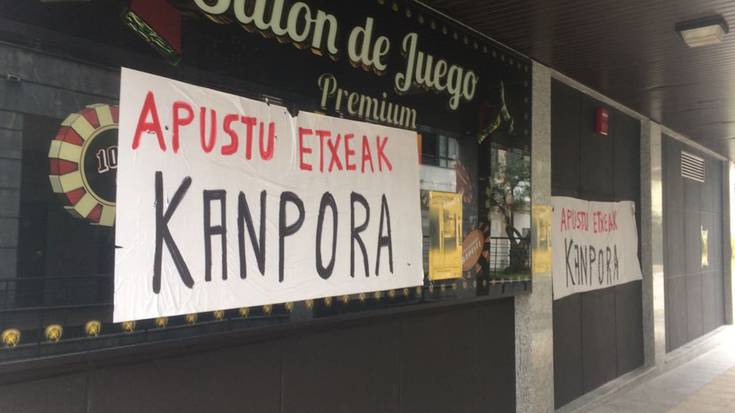 Salón de Juego
Premium
APUSTU ETXEAK
KANPORA
APUSTU ETXEAK
KANPORA